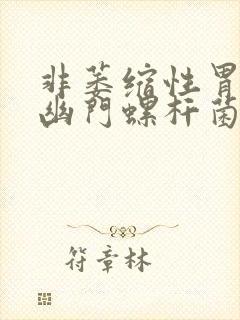 非萎缩性胃
幽门螺杆菌
符章林